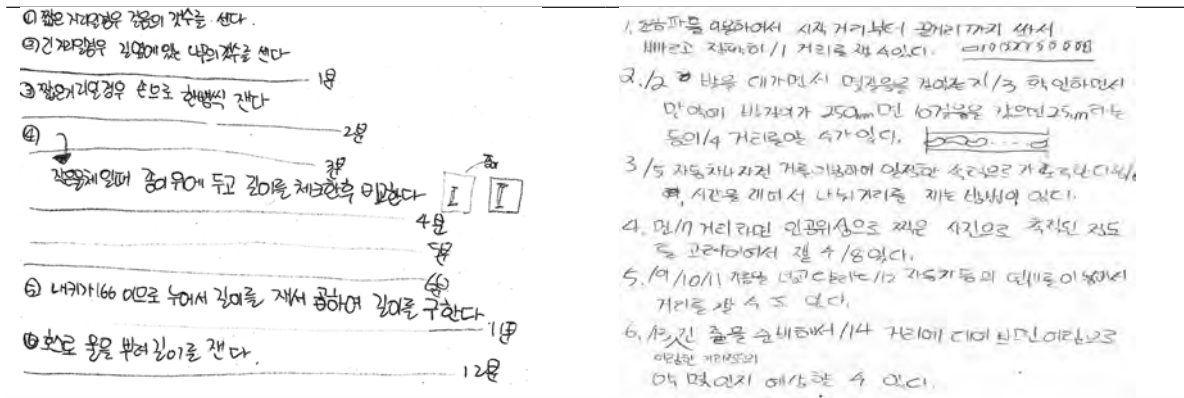 ① 짧은 거리일경우 걸음의 갯수를 센다.
② 긴 거리일경우 길옆에 있는 나무의 갯수를 센다
1분
③ 짧은거리일경우 손으로 한뼘씩 잰다
2분
④
3분
작은물체일때 종이위에 두고 길이를 체크한후 비교한다
종이
4분
5분
6분
⑤ 내키가 166 이므로 누어서 길이를 재서 곱하여 길이를 구한다
11분
⑥ 호스로 물을 뿌려 길이를 잰다.
12분
1. 초음파를 이용하여서 시작 거리부터 끝거리까지 쏴서
빠르고 정확히/1 거리를 잴 수있다.
2./2 발을 대가면서 몇걸음을 걸었는지/3 확인하면서
만약에 발길이가 250mm면 10걸음을 갔으면 25m라는
등의/4 거리를 알 수가 있다.
3/5 자동차나 자전거를 이용하여 일정한 속력으로
시간을 재어서 나눠 거리를 재는 방법이 있다.
4. 먼/7 거리라면 인공위성으로 찍은 사진으로 축척된 정도
를 고려하여서 잴 수/8있다.
5./9/10/11 기름만 넣고 달리는/12 자동차 등의 연비를 이용해서
거리를 잴 수도 있다.
6./13 긴 줄을 준비해서/14 거리에 대어 보면 어림으로
약 몇인지 예상할 수 있다.